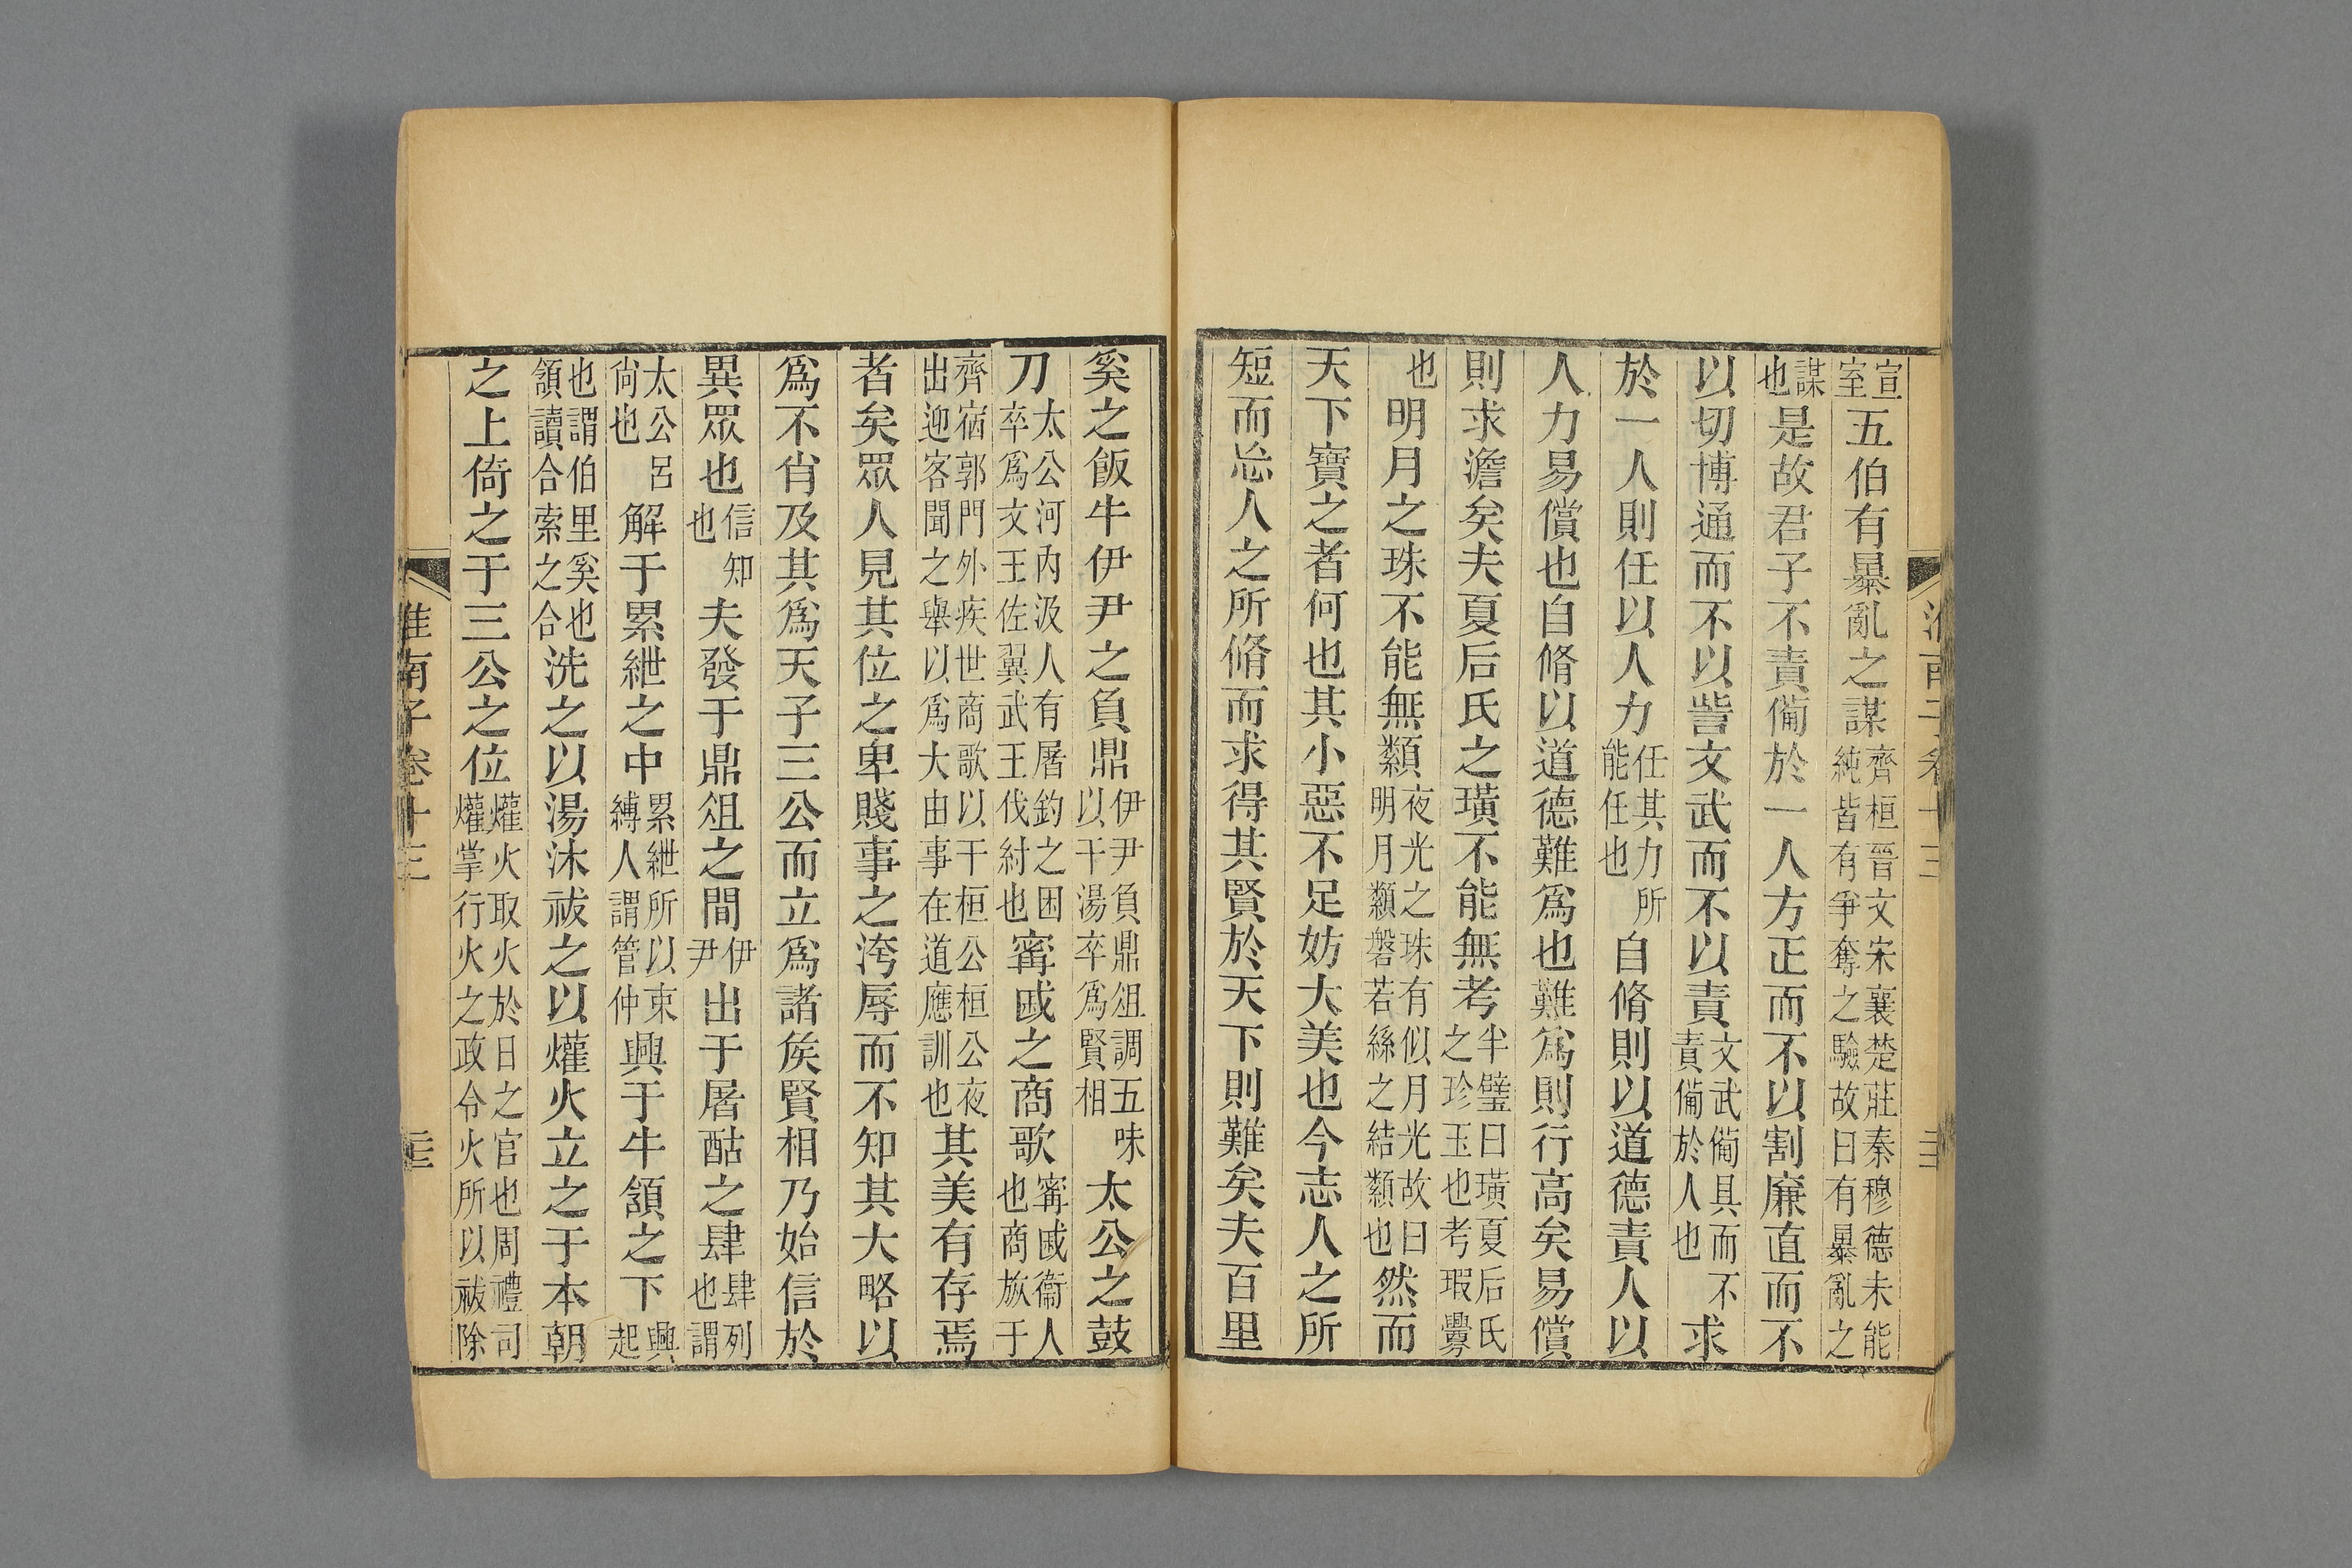 宣室五伯有暴亂之謀齊桓晉文宋襄楚莊秦穆德未能純皆有爭奪之驗故曰有暴亂之
謀也是故君子不責備於一人方正而不以割廉直而不
以切博通而不以訾文武而不以責文武備具而不責備於人也求
於一人則任以人力任其力所能任也自脩則以道德責人以
人力易償也自脩以道德難爲也難爲則行高矣易償
則求澹矣夫夏后氏之璜不能無考半璧曰璜夏后氏之珍玉也考瑕釁
也明月之珠不能無纇夜光之珠有似月光故曰明月纇磐若絲之結纇也然而
天下寶之者何也其小惡不足妨大美也今志人之所
短而忘人之所脩而求得其賢於天下則難矣夫百里
奚之飯牛伊尹之負鼎伊尹負鼎俎調五味以干湯卒爲賢相太公之鼓
刀太公河內汲人有屠釣之困卒爲文王佐翼武王伐紂也甯戚之商歌甯戚衞人也商旅于
齊宿郭門外疾世商歌以干桓公桓公夜出迎客聞之舉以爲大由事在道應訓也其美有存焉
者矣眾人見其位之卑賤事之洿辱而不知其大略以
爲不肖及其爲天子三公而立爲諸矦賢相乃始信於
異眾也信知也夫發于鼎俎之間伊尹出于屠酤之肆肆列也謂
太公呂尙也解于累紲之中累紲所以束縛人謂管仲興于牛頷之下興起
也謂伯里奚也頷讀合索之合洗之以湯沐祓之以爟火立之于本朝
之上倚之于三公之位爟火取火於日之官也周禮司爟掌行火之政令火所以祓除
淮南子卷十三